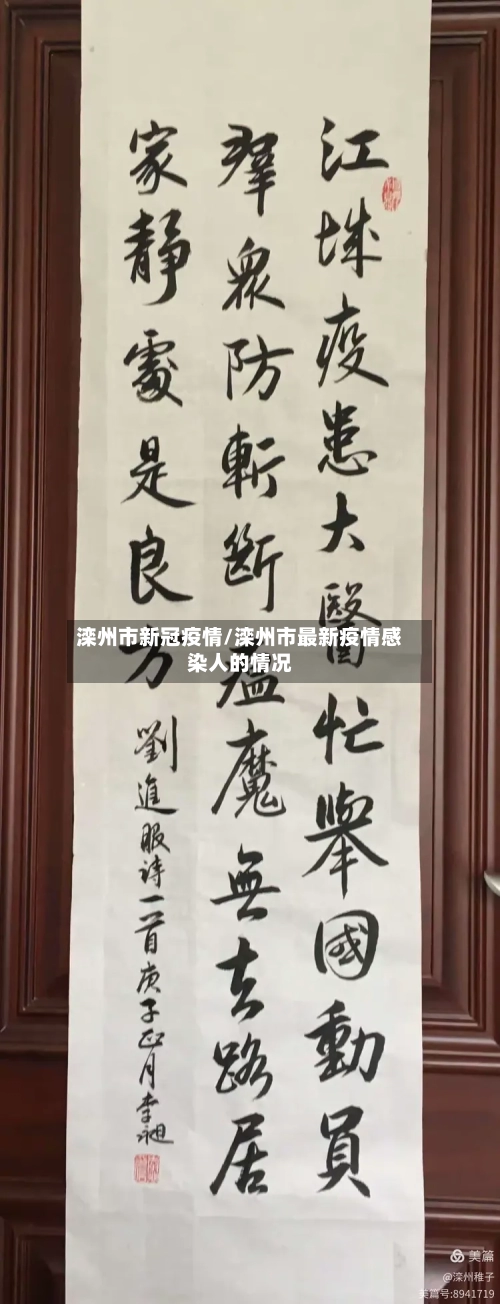 江城疫患大醫忙舉國動員
群眾防斬斷瘟魔無去路居
家靜處是良方
劉進服詩一首庚子正月李昶
滦州市新冠疫情/滦州市最新疫情感
染人的情况
美篇
@滦州稚子
美篇号:8941719